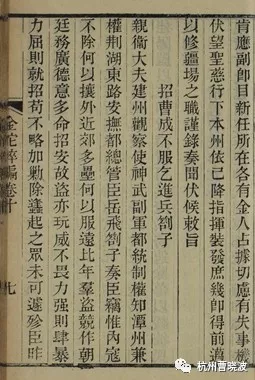 肯應副卽目新任所在各有金人占據切慮有失事機
伏望聖慈行下本州依已降指揮裝發庶幾卽得前邁
以修疆場之職謹錄奏聞伏候敕旨
招曹成不服乞進兵劄子
親衞大夫建州觀察使神武副軍都統制權知潭州兼
權荆湖東路安撫都總管臣岳飛劄子奏臣竊惟內寇
不除何以攘外近郊多壘何以服遠比年羣盜競作朝
廷務廣德意多命招安故盜亦玩威不畏力强則肆暴
力屈則就招苟不略加勦除蠭起之眾未可遽殄臣昨
金佗稡編卷十
九
杭州曹晓波